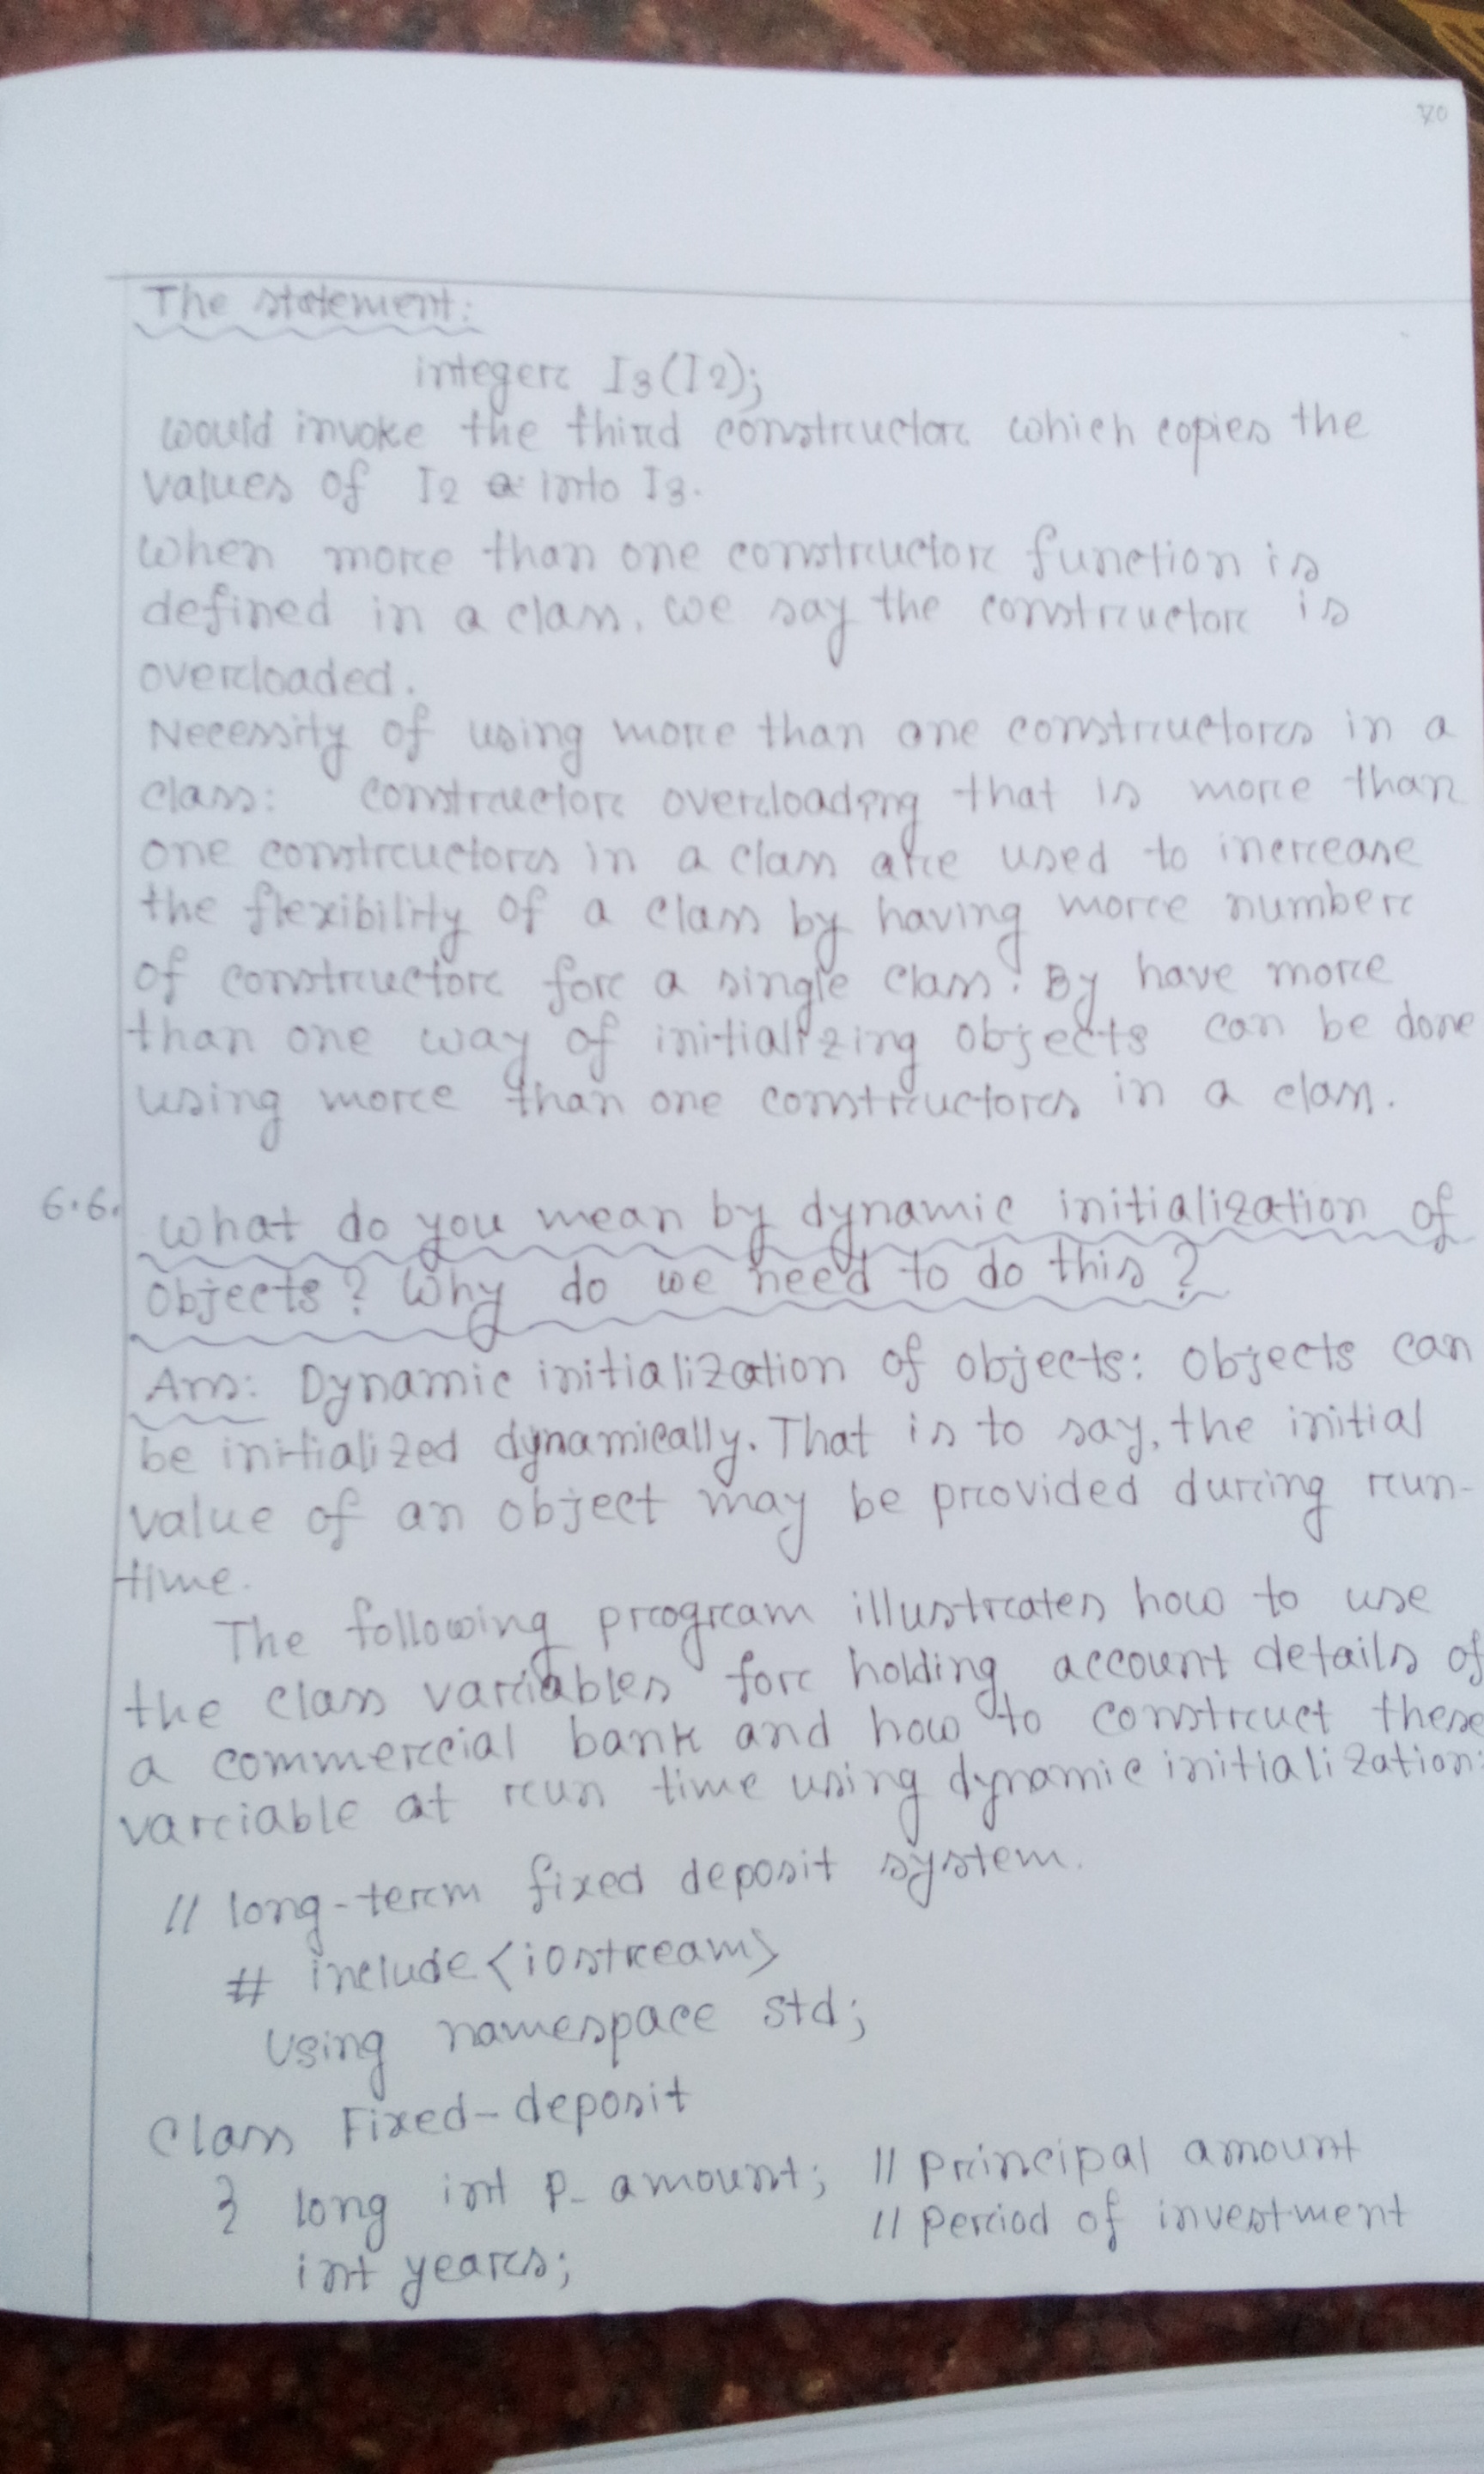 The statement:
integer I3(I2);
would invoke the third constructor which copies the
values of I2 into I3.
When more than one constructor function is
defined in a class, we say the constructor is
overloaded.
Necessity of using more than one constructors in a
class: constructor overloading that is more than
one constructors in a class are used to increase
the flexibility of a class by having more number
of constructor for a single class. By have more
than one way of initializing objects can be done
using more than one constructors in a class.
6.6. What do you mean by dynamic initialization of
objects? Why do we need to do this?
Ans: Dynamic initialization of objects: Objects can
be initialized dynamically. That is to say, the initial
value of an object may be provided during run-
time.
The following program illustrates how to use
the class variables for holding account details of
a commercial bank and how to construct these
variable at run time using dynamic initialization:
// long-term fixed deposit system.
# include <iostream>
Using namespace std;
Class Fixed-deposit
{ long int P_amount; // Principal amount
int years; // Period of investment